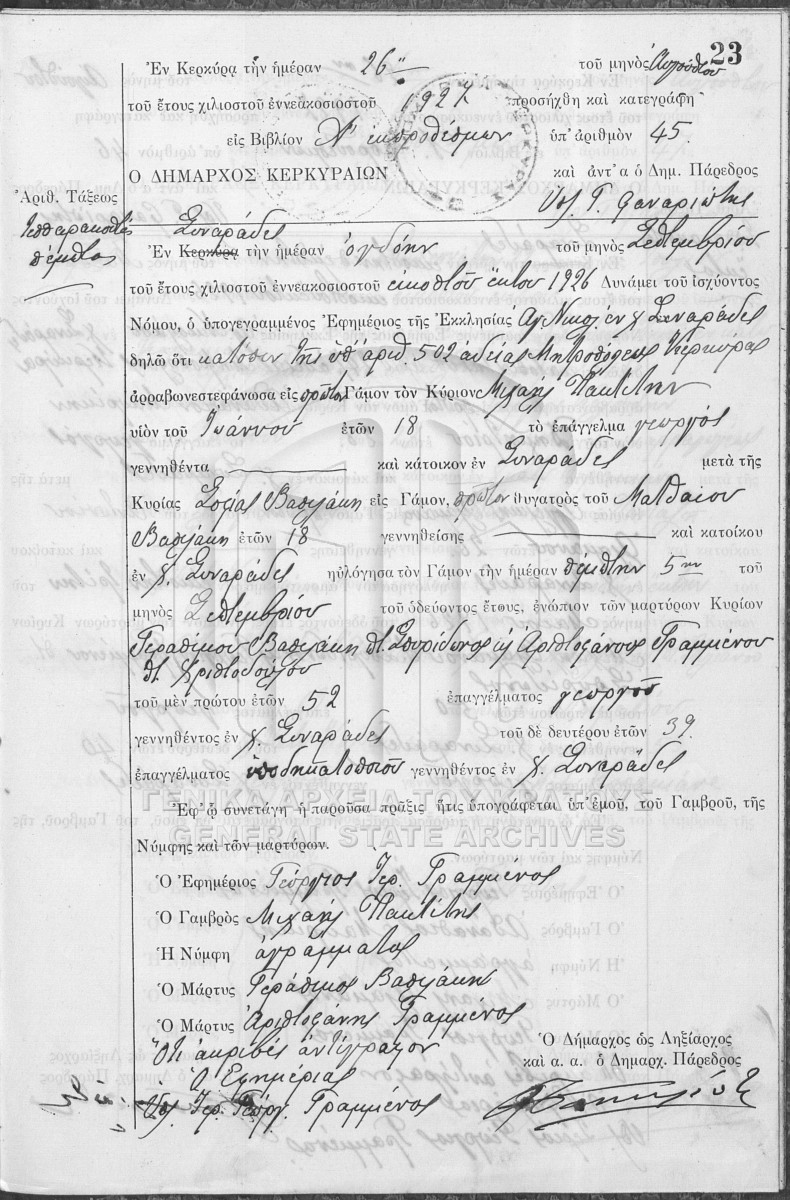 23
Ἐν Κερκύρᾳ τὴν ἡμέραν 26ην τοῦ μηνὸς Αὐγούστου
τοῦ ἔτους χιλιοστοῦ ἐννεακοσιοστοῦ 1927 προσήχθη καὶ κατεγράφη
εἰς Βιβλίον Χ' ἐκπροθέσμων ὑπ' ἀριθμὸν 45.
Ὁ ΔΗΜΑΡΧΟΣ ΚΕΡΚΥΡΑΙΩΝ καὶ ἀντ' α ὁ Δημ. Πάρεδρος
Ἀριθ. Τάξεως
Τεσσαρακοστὸς
πέμπτος
Συναράδες
Ἐν Κερκύρᾳ τὴν ἡμέραν ὀγδόην τοῦ μηνὸς Σεπτεμβρίου
τοῦ ἔτους χιλιοστοῦ ἐννεακοσιοστοῦ εἰκοστοῦ ἕκτου 1926 Δυνάμει τοῦ ἰσχύοντος
Νόμου, ὁ ὑπογεγραμμένος Ἐφημέριος τῆς Ἐκκλησίας Αγ. Νικολ. ἐν χ. Συναράδες
δηλῶ ὅτι κατόπιν τῆς ὑπ' ἀριθ. 502 ἀδείας Μητροπόλεως Κερκύρας
ἀρραβωνεστεφάνωσα εἰς πρῶτον Γάμον τὸν Κύριον Μιχαὴλ Πακτίτην
υἱὸν τοῦ Ἰωάννου ἐτῶν 18 τὸ ἐπάγγελμα γεωργός
γεννηθέντα καὶ κάτοικον ἐν Συναράδες μετὰ τῆς
Κυρίας Σοφίας Βασιλάκη εἰς Γάμον, πρῶτον θυγατρὸς τοῦ Ματθαίου
Βασιλάκη ἐτῶν 18 γεννηθείσης καὶ κατοίκου
ἐν χ. Συναράδες ηὐλόγησα τὸν Γάμον τὴν ἡμέραν πέμπτην 5ην τοῦ
μηνὸς Σεπτεμβρίου τοῦ ὁδεύοντος ἔτους, ἐνώπιον τῶν μαρτύρων Κυρίων
Γερασίμου Βασιλάκη Σπυρίδωνος Ἀριστοφάνους Γραμμένου
Χριστοδούλου
τοῦ μὲν πρώτου ἐτῶν 52 ἐπαγγέλματος γεωργοῦ
γεννηθέντος ἐν χ. Συναράδες τοῦ δὲ δευτέρου ἐτῶν 39.
ἐπαγγέλματος ὑποδηματοποιοῦ γεννηθέντος ἐν χ. Συναράδες
ΓΕΝΙΚΑ ΑΡΧΕΙΑ ΤΟΥ ΚΡΑΤΟΥΣ
Ἐφ' ᾧ συνετάγη ἡ παροῦσα πρᾶξις ἥτις ὑπογράφεται ὑπ' ἐμοῦ, τοῦ Γαμβροῦ, τῆς
GENERAL STATE ARCHIVES
Νύμφης καὶ τῶν μαρτύρων.
Ὁ Ἐφημέριος Γεώργιος Ἱερ. Γραμμένος
Ὁ Γαμβρὸς Μιχαὴλ Πακτίτης
Ἡ Νύμφη ἀγράμματος
Ὁ Μάρτυς Γεράσιμος Βασιλάκης
Ὁ Μάρτυς Ἀριστοφάνης Γραμμένος
Ὅτι ἀκριβὲς ἀντίγραφον
Ὁ Ἐφημέριος
Ἱερ. Γεώργ. Γραμμένος
Ὁ Δήμαρχος ὡς Ληξίαρχος
καὶ α. α. ὁ Δημαρχ. Πάρεδρος